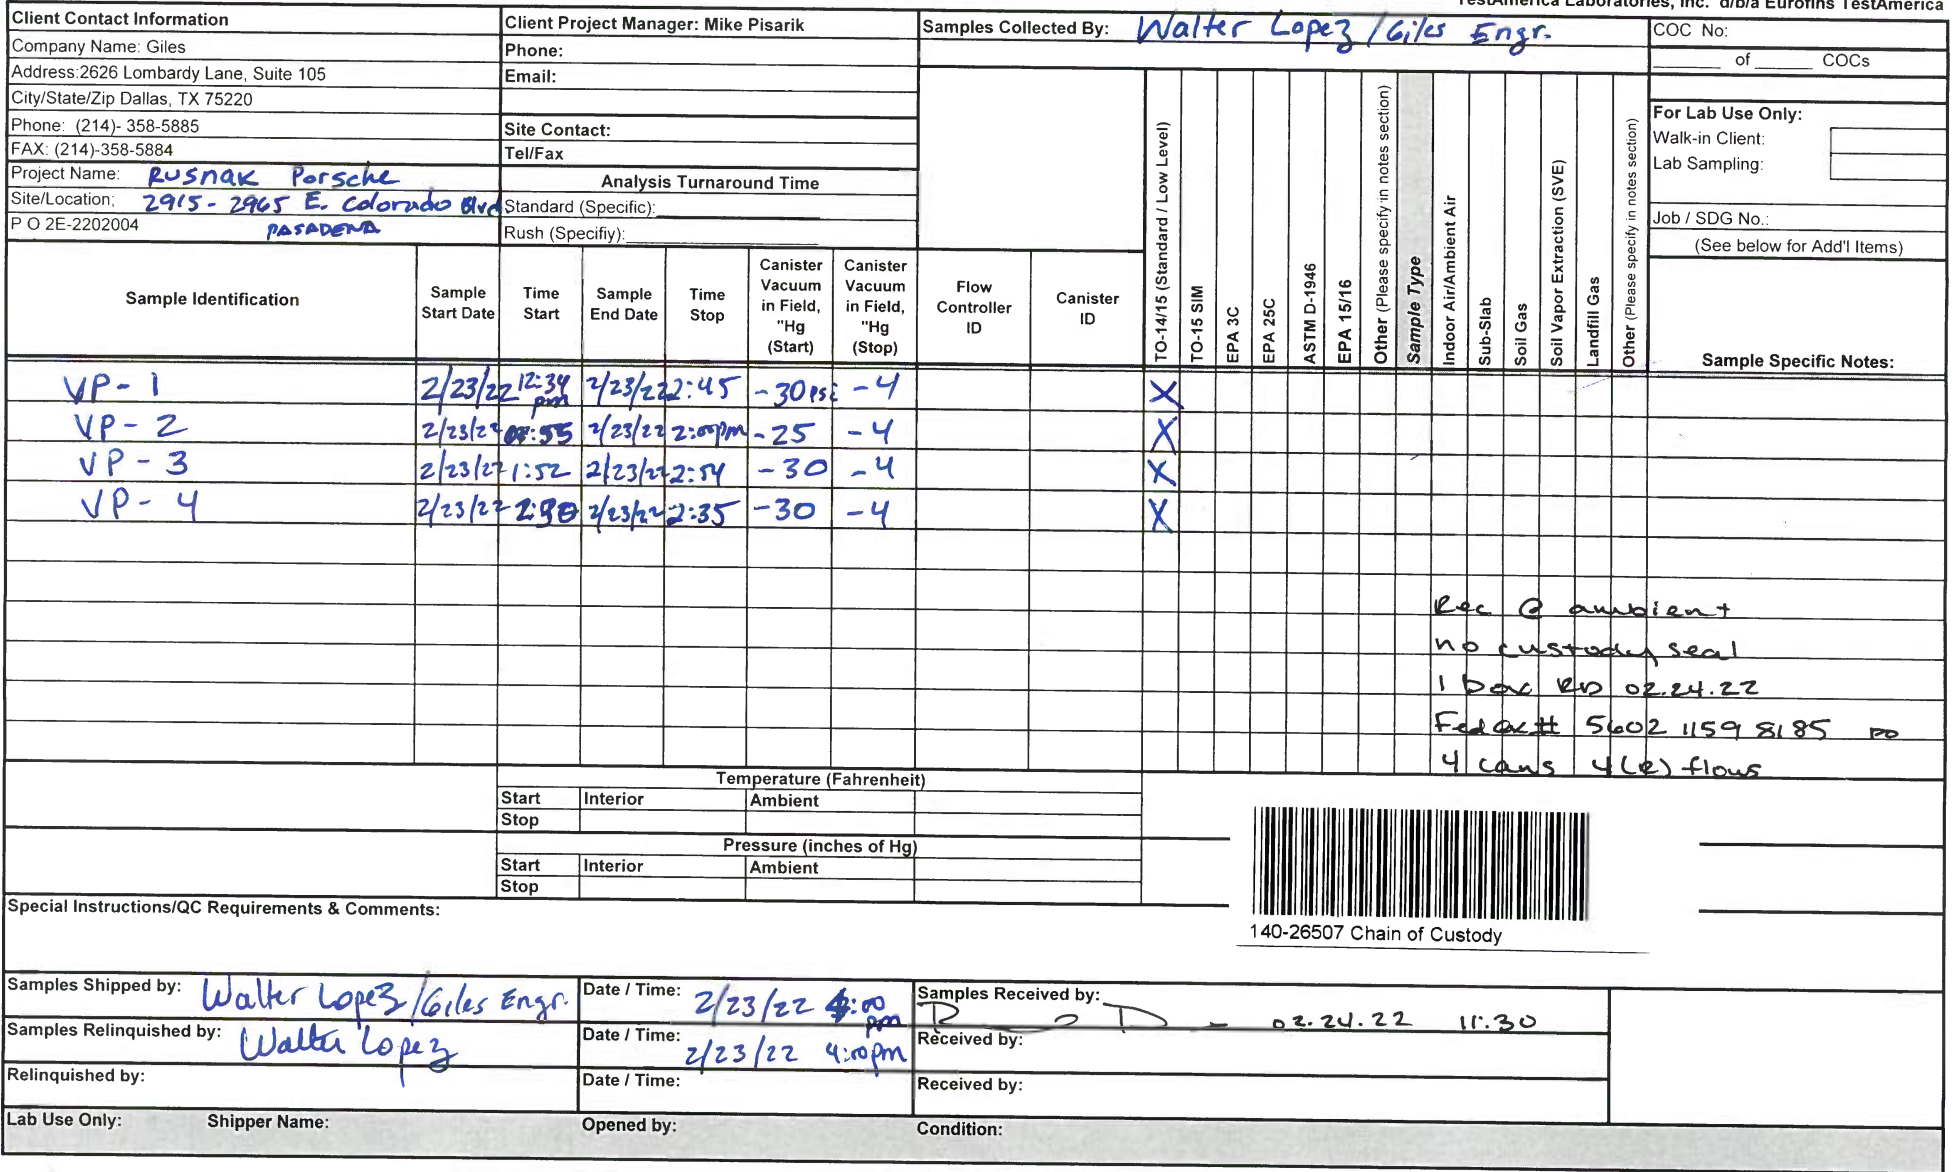 TestAmerica Laboratories, Inc. d/b/a Eurofins TestAmerica
Client Contact Information
Company Name: Giles
Address:2626 Lombardy Lane, Suite 105
City/State/Zip Dallas, TX 75220
Phone: (214)- 358-5885
FAX: (214)-358-5884
Project Name: Rusnak Porsche
Site/Location: 2915-2965 E. Colorado Blvd
P O 2E-2202004 PASADENA
Client Project Manager: Mike Pisarik
Phone:
Email:
Site Contact:
Tel/Fax
Analysis Turnaround Time
Standard (Specific):
Rush (Specifiy):
Samples Collected By: Walter Lopez /Giles Engr.
COC No:
of COCs
For Lab Use Only:
Walk-in Client:
Lab Sampling:
Job / SDG No.:
(See below for Add'l Items)
Sample Identification
Sample
Start Date
Time
Start
Sample
End Date
Time
Stop
Canister
Vacuum
in Field,
"Hg
(Start)
Canister
Vacuum
in Field,
"Hg
(Stop)
Flow
Controller
ID
Canister
ID
TO-14/15 (Standard / Low Level)
TO-15 SIM
EPA 3C
EPA 25C
ASTM D-1946
EPA 15/16
Other (Please specify in notes section)
Sample Type
Indoor Air/Ambient Air
Sub-Slab
Soil Gas
Soil Vapor Extraction (SVE)
Landfill Gas
Other (Please specify in notes section)
Sample Specific Notes:
VP-1 2/23/22 12:34 pm 2/23/22 2:45 -30psi -4 X
VP-2 2/23/22 2/23/22 2:00pm -25 -4 X
VP-3 2/23/22 1:52 2/23/22 2:54 -30 -4 X
VP-4 2/23/22 2/23/22 2:35 -30 -4 X
Rec @ ambient
no custody seal
1 box RD 02.24.22
FedEx# 5602 1159 8185 RD
4 cans 4(e) flows
Temperature (Fahrenheit)
Start Interior Ambient
Stop
Pressure (inches of Hg)
Start Interior Ambient
Stop
140-26507 Chain of Custody
Special Instructions/QC Requirements & Comments:
Samples Shipped by: Walter Lopez/Giles Engr. Date / Time: 2/23/22 4:00 pm Samples Received by: 02.24.22 11:30
Samples Relinquished by: Walter Lopez Date / Time: 2/23/22 4:00pm Received by:
Relinquished by: Date / Time: Received by:
Lab Use Only: Shipper Name: Opened by: Condition: